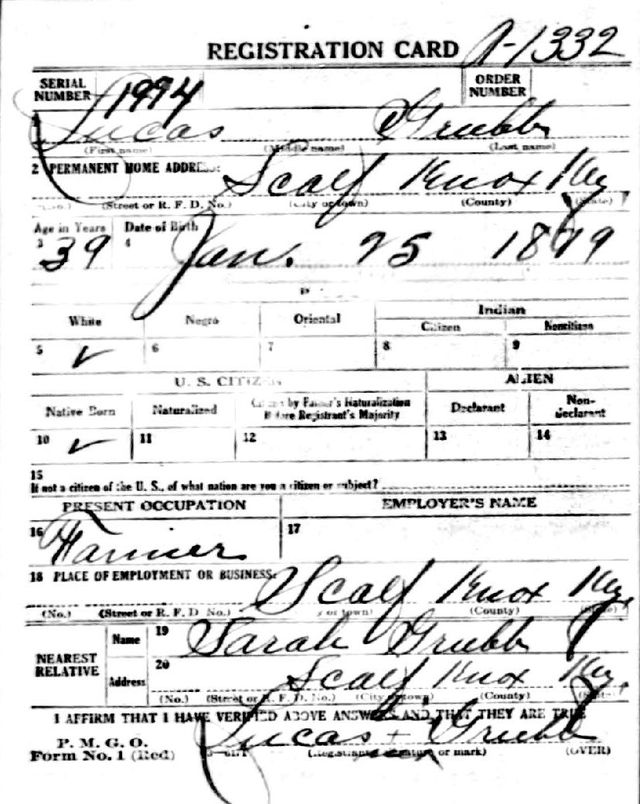 REGISTRATION CARD A-1332
SERIAL NUMBER 1994 ORDER NUMBER
Lucas Grubb
(First name) (Middle name) (Last name)
2 PERMANENT HOME ADDRESS: Scalf Knox Ky.
(No.) (Street or R. F. D. No.) (City or town) (County) (State)
Age in Years Date of Birth
3 39 4 Jan. 25 1879
White Negro Oriental Indian
Citizen Noncitizen
5 ✓ 6 7 8 9
U. S. CITIZEN ALIEN
Native Born Naturalized Citizen by Father's Naturalization Before Registrant's Majority Declarant Non-declarant
10 ✓ 11 12 13 14
15
If not a citizen of the U. S., of what nation are you a citizen or subject?
PRESENT OCCUPATION EMPLOYER'S NAME
16 Farmer 17
18 PLACE OF EMPLOYMENT OR BUSINESS: Scalf Knox Ky.
(No.) (Street or R. F. D. No.) (City or town) (County) (State)
NEAREST RELATIVE Name 19 Sarah Grubb
Address 20 Scalf Knox Ky.
(No.) (Street or R. F. D. No.) (City or town) (County) (State)
I AFFIRM THAT I HAVE VERIFIED ABOVE ANSWERS AND THAT THEY ARE TRUE
P. M. G. O.
Form No. 1 (Red) Lucas + Grubb
(Registrant's signature or mark) (OVER)